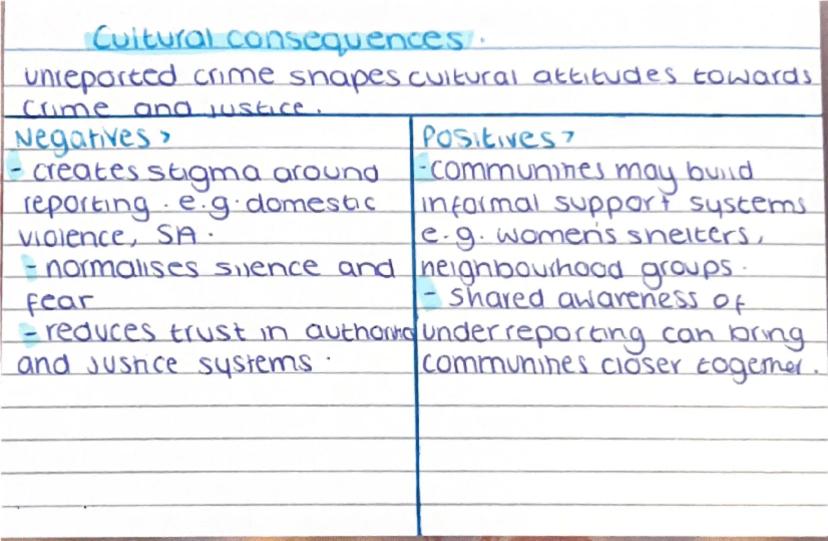 Cultural consequences.
unreported crime shapes cultural attitudes towards
crime and justice.
Negatives >
- creates stigma around
reporting. e.g. domestic
violence, SA.
- normalises silence and
fear
- reduces trust in authority
and justice systems.
Positives >
- communities may build
informal support systems
e.g. women's shelters,
neighbourhood groups.
- shared awareness of
underreporting can bring
communities closer together.